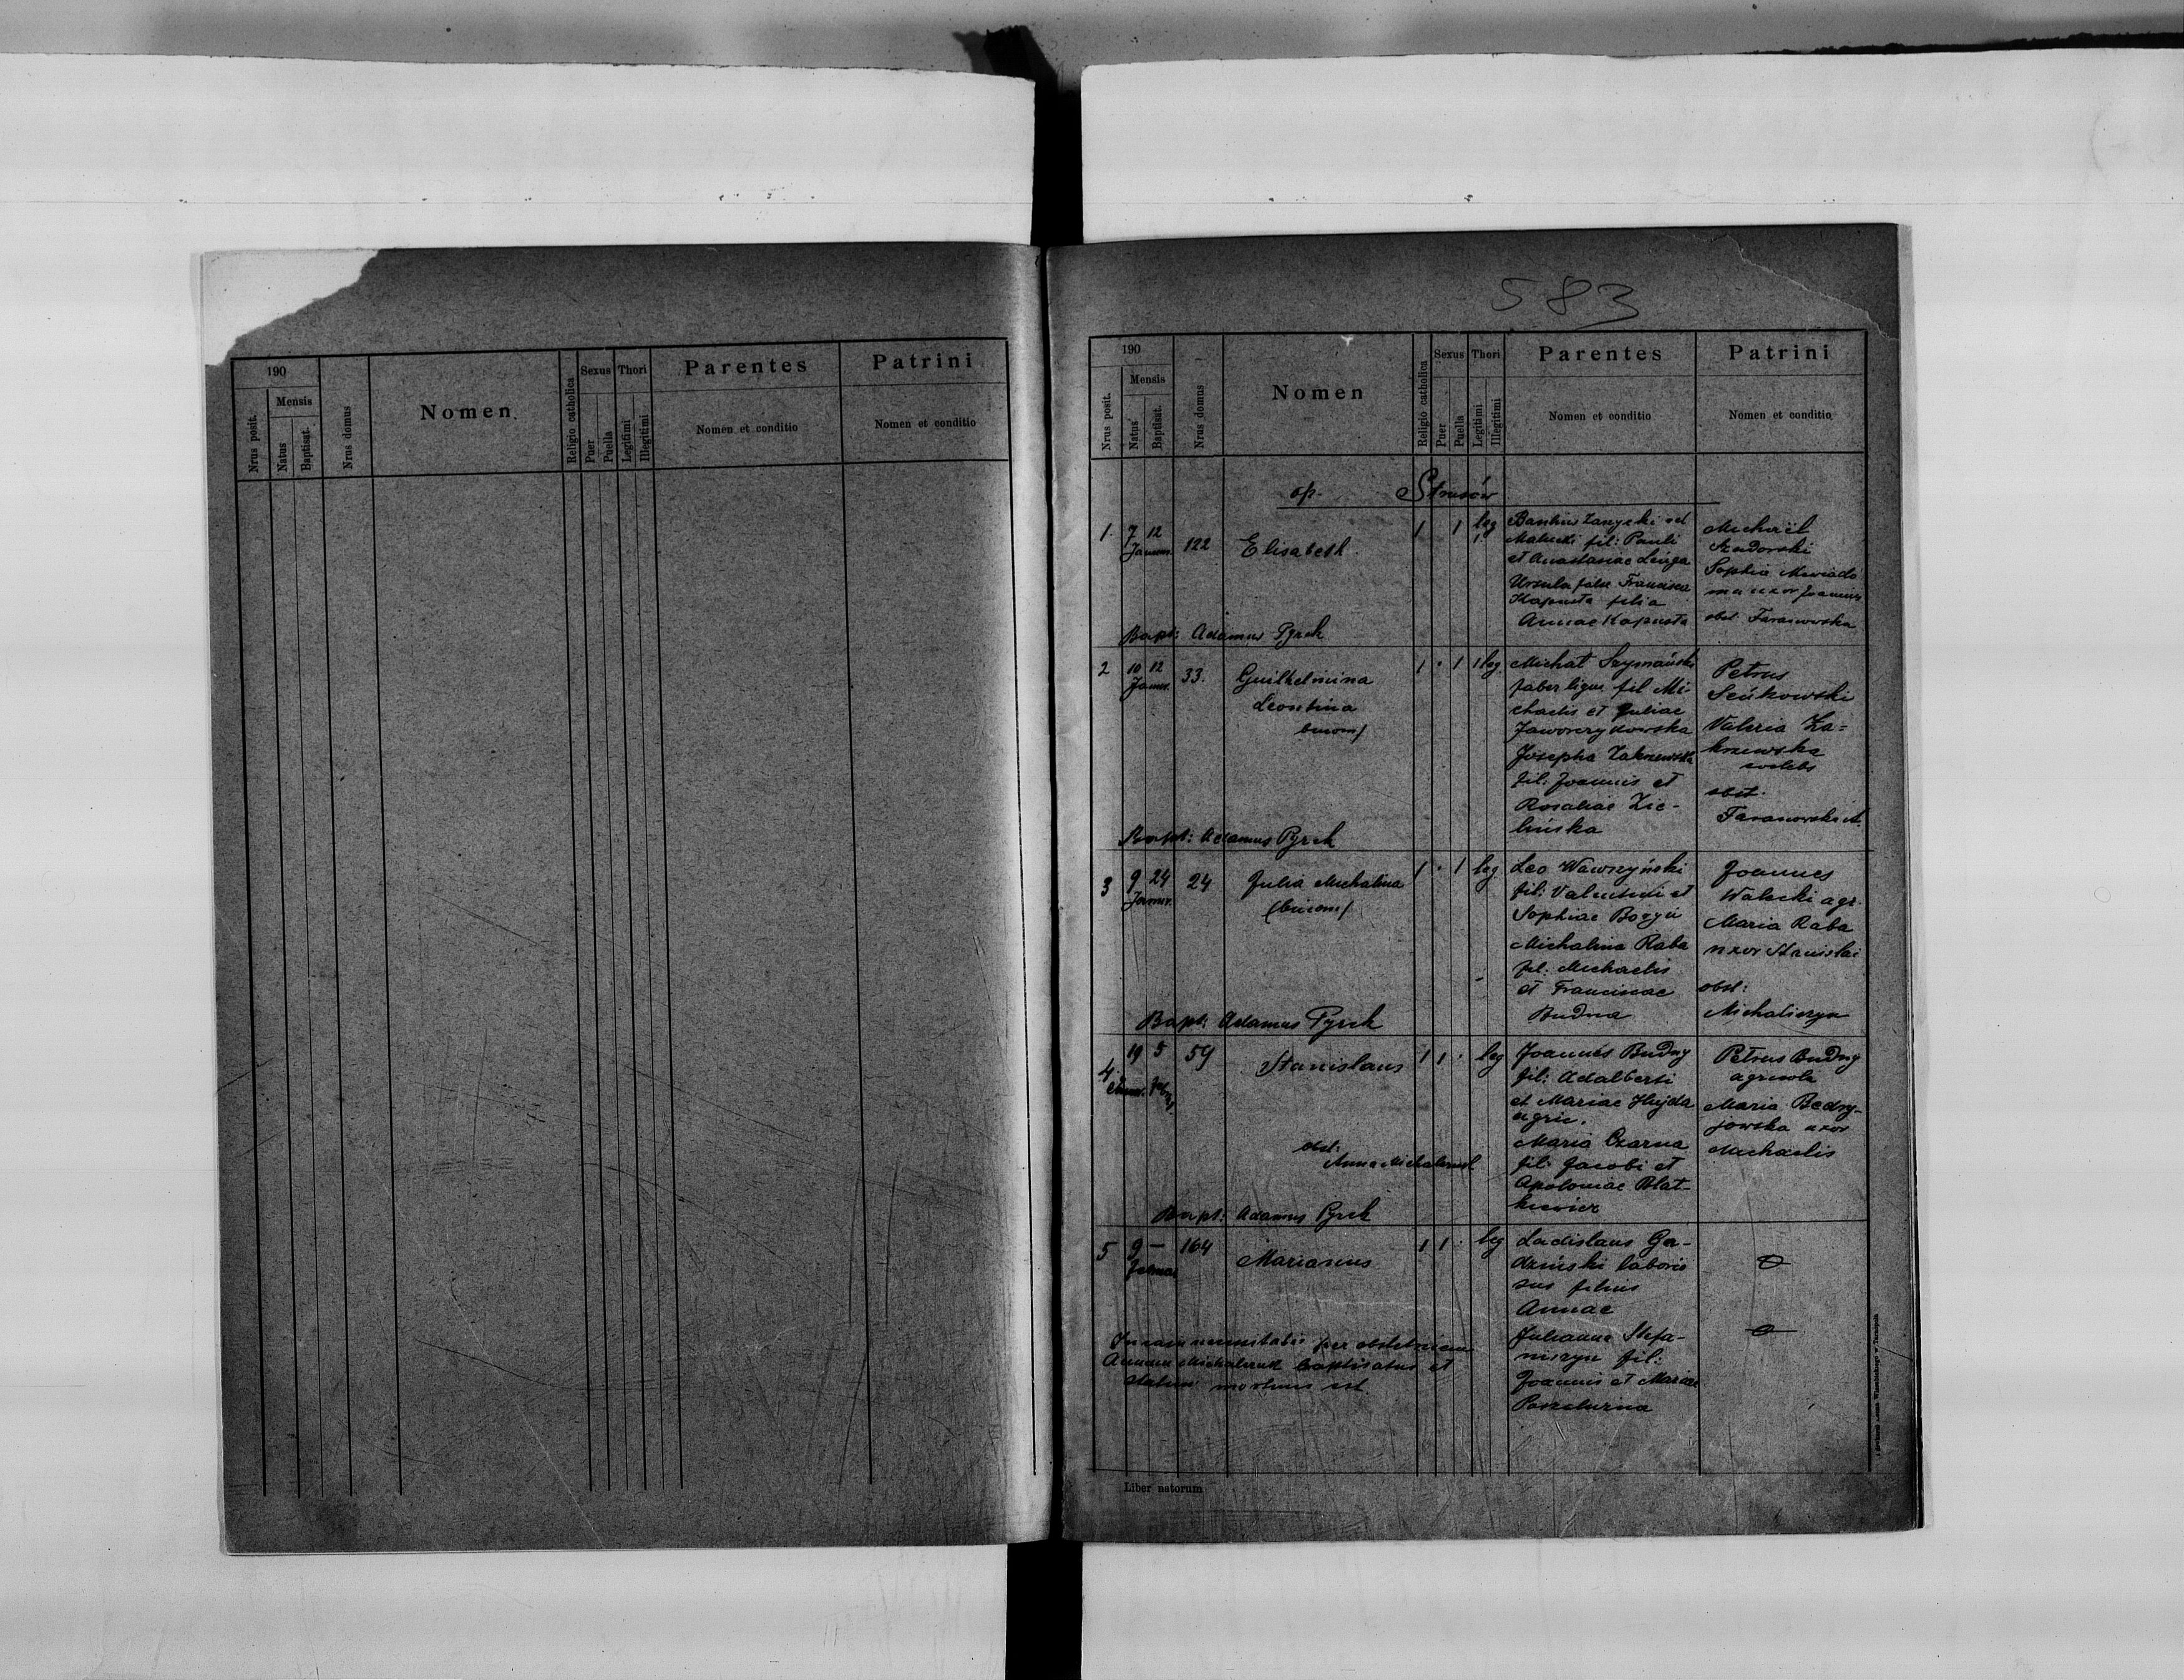 190
Nrus posit.
Mensis
Natus
Baptisat.
Nrus domus
Nomen
Religio catholica
Sexus
Puer
Puella
Thori
Legitimi
Illegitimi
Parentes
Nomen et conditio
Patrini
Nomen et conditio
583
190
Nrus posit.
Mensis
Natus
Baptisat.
Nrus domus
Nomen
Religio catholica
Sexus
Puer
Puella
Thori
Legitimi
Illegitimi
Parentes
Nomen et conditio
Patrini
Nomen et conditio
op. Strusów
1. 7 12 122 Elisabeth 1 1 leg
Malecki fil: Pauli
et Anastasiae
Ursula
Kapusta filia
Annae Kapusta
Michaël
Sophia
uxor Joannis
obst. Taranowska
Bapt: Adamus Pyrek
2 10 12 Januar. 33. Guilhelmina 1 1 1 leg
Leontina
Michał Szymański
faber lign. fil Mi-
chaelis et Juliae
Josepha Zakrzewska
fil: Joannis et
Rosaliae Zie-
lińska
Petrus
Seńkowski
Valeria Za-
krzewska
obst.
Taranowska
Bapt: Adamus Pyrek
3 9 24 Januar. 24 Julia Michalina 1 1 leg
Leo Wawrzyński
fil: Valentini et
Sophiae
Michalina Raba
fil. Michaelis
et Franciscae
Budna
Joannes
Walecki agr.
Maria Raba
uxor Stanislai
obst:
Michaliczyn
Bapt: Adamus Pyrek
4. 19 5 59 Stanislaus 1 1 leg
Joannes Budny
fil: Adalberti
et Mariae Hujda
agric.
Maria Czarna
fil: Jacobi et
Apoloniae Blat-
kiewicz
Petrus Budny
agricola
Maria Bedry-
jowska uxor
Michaelis
obst:
Anna
Bapt: Adamus Pyrek
5 9 — 164 Marianus 1 1 leg
Ladislaus Ga-
dziński laborio
sus filius
Annae
Julianna Stefa-
niszyn fil:
Joannis et Mariae
necessitatis per obstetricem
Annam baptisatus et
statim mortuus est
Liber natorum